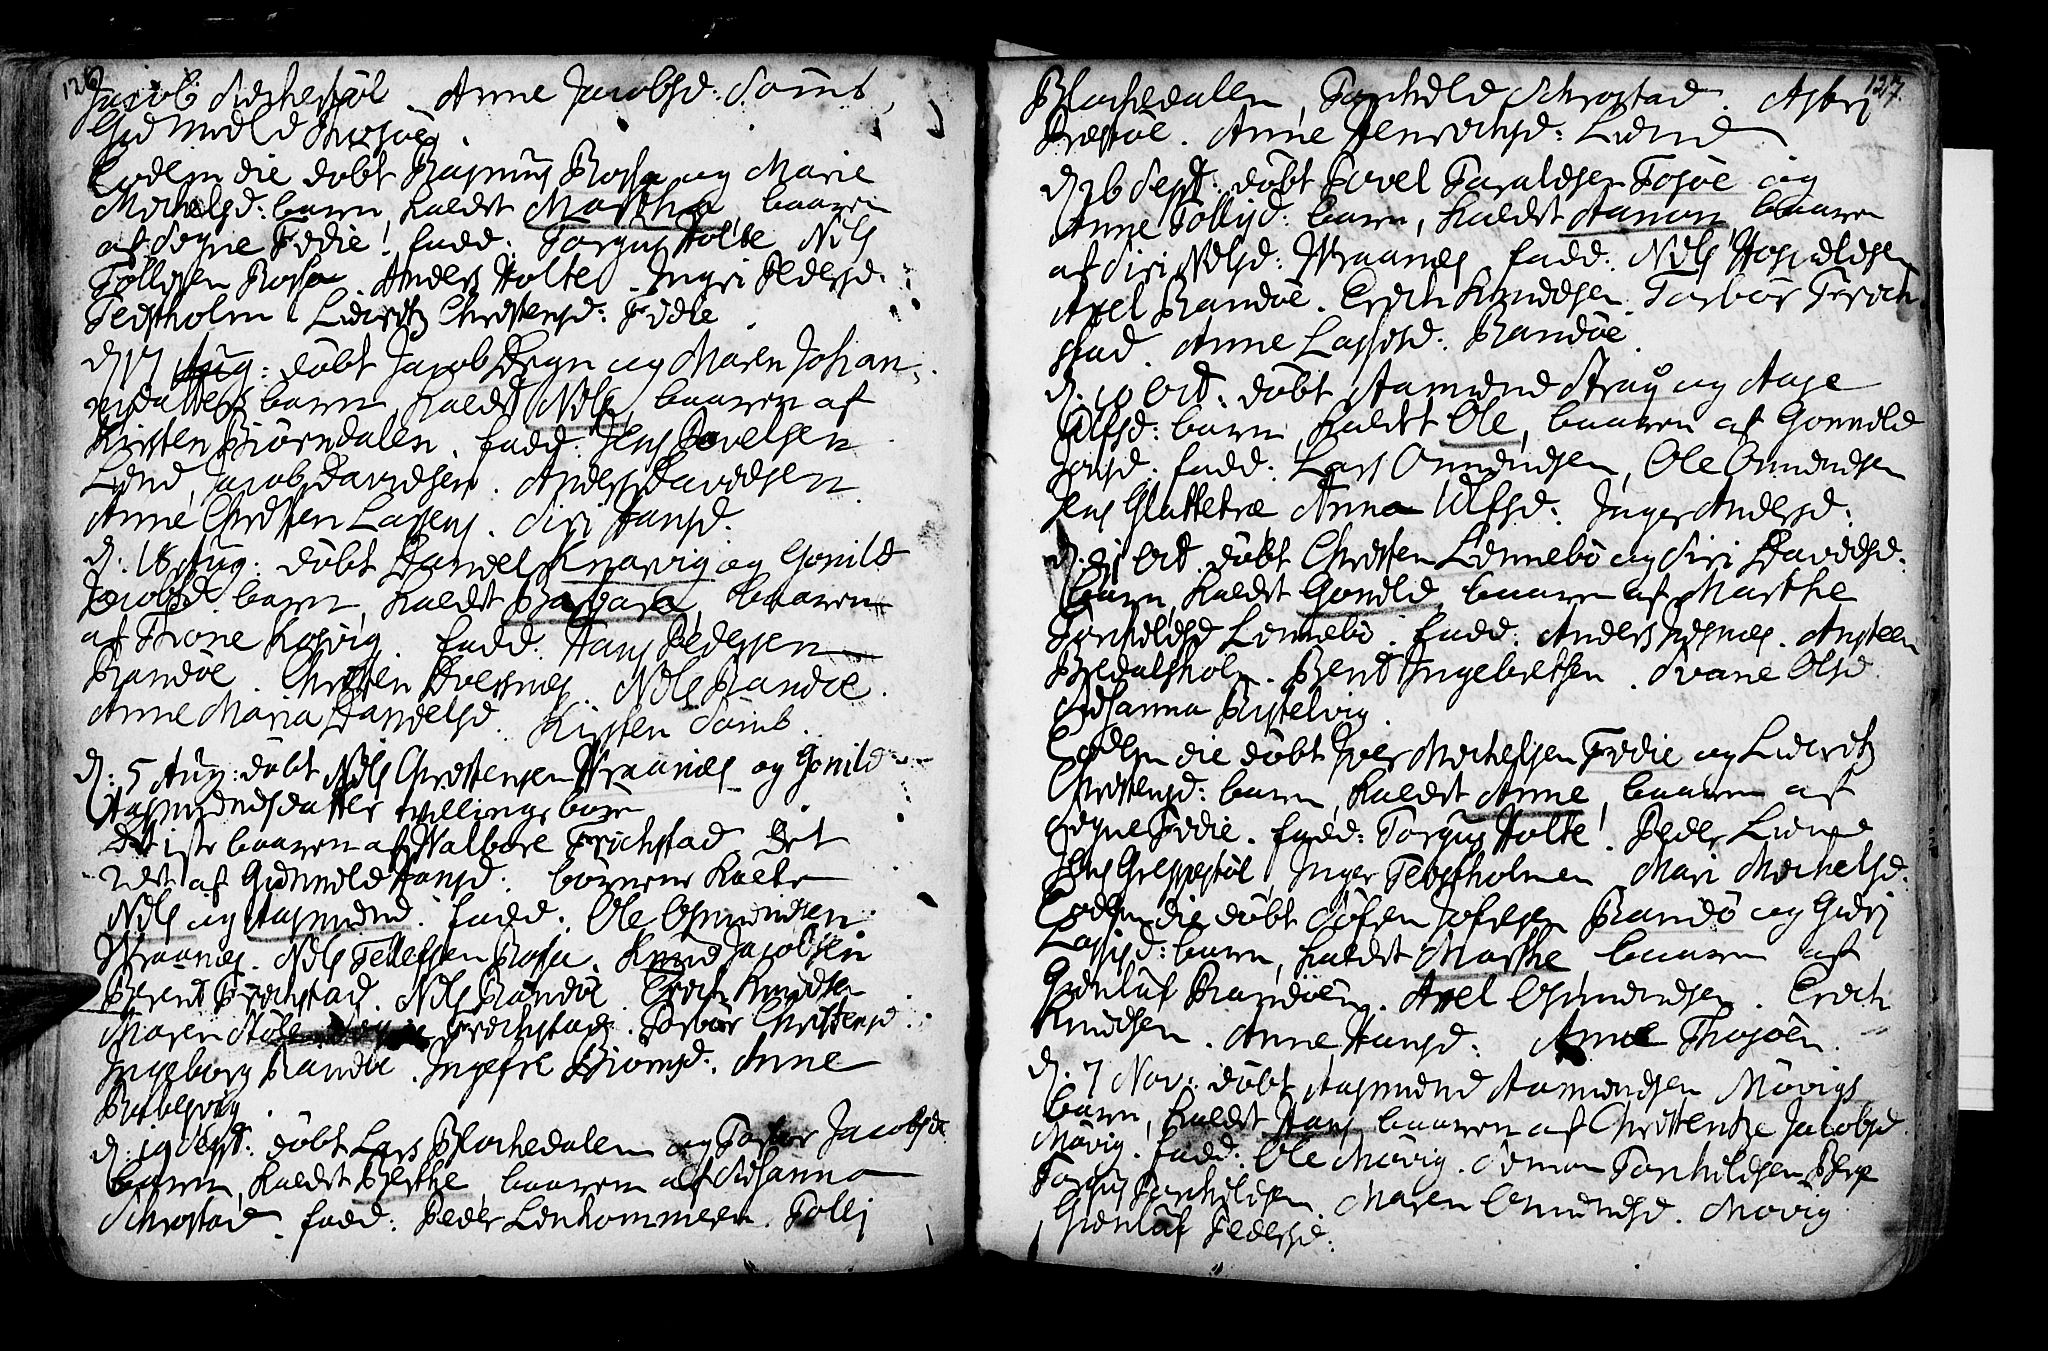 126
Jacob Kirkestøl. Anne Jacobsd: Somb,
Gunnild Thosøe.
Eodem die døbt Rasmus Rossa og Marie
Michelsd: barn, kaldt Martha, baaren
af Segne Fidie! fadd: Torgus Holte Nils
Tollefsen Rossa. Anders Holte. Ingri Pedersd:
Teistholm. Lucritz Christensd: Fidie.
d: 17 Aug: døbt Jacob Degn og Maren Johan-
nisdatters barn, kaldt Nils, baaren af
Kirsten Biørndalen. fadd: Jens Povelsen
Lund, Jacob Davidsen. Anders Davidsen.
Anne Christen Lassens. Siri Hansd:
d: 18 Aug: døbt Daniel Knarvig og Gonild
Jacobsd: barn, kaldt Barbara, baaren
af Trone Kosvig. fadd: Hans Pedersen
Randøe. Christen Drefsnes. Nils Randøe.
Anne Maria Danielsd. Kirsten Somb.
d: 5 Aug: døbt Nils Christensen Wraanes og Gonild
Aasmundsdatter tvillings børn
Det 1ste baaren af Walbore Frichstad. Det
2det af Gunnild Hansd: børnene kaldte
Nils og Aasmund. fadd: Ole Osmundsen
Wraanes. Nils Tellefsen Rossa. Knud Jacobsen
Berent Frichstad. Nils Randøe. Erich Knudsen
Maren Frichstad. Torbor Christensd.
Ingeborg Randøe. Ingefre Biørnsd. Anne
d: 19 Sept: døbt Lars Blochedalen og Torbor Jacobsd:
barn, kaldt Berthe, baaren af Susanna
Schrostad. fadd: Peder Linhommeren. Tolli
127.
Blochedalen, Torchild Schrostad. Asbri
Præstøe. Anne Henrichsd: Lund
d: 26 Sept: døbt Povel Taraldsen Fosøe og
Anne Tollisd: barn, kaldt Aanon, baaren
af Siri Nilsd: Wraanes. fadd: Nils
Axel Randøe. Erich Knudsen. Torbor Frich-
stad. Anne Lassisd: Randøe.
d: 10 Oct: døbt Aamund Straÿ og Aase
Ulfsd: barn, kaldt Ole, baaren af Gonnild
Jonsd: fadd: Lars Omundsen, Ole Omundsen
Jens Glattetræ Anna Ulfsd: Inger Andersd:
d: 31 Oct. døbt Christen Linnebo og Siri Davidsd:
barn, kaldt Gonild, baaren af Marthe
Torkildsd Linnebo. fadd: Anders Austeen
Bredalsholm. Bent Ingebretsen. Svane Olsd.
Susanna Rystelvig.
Eodem die døbt Iver Michelsen Fidie og Lucritz
Christensd: barn, kaldt Anne, baaren af
Segne Fidie. fadd: Torgus Holte! Peder Lund
Jens Greppestøl, Inger Teistholmen Mari Michelsd:
Eodem die døbt Søfren Jofsesen Randø og Guri
Lassisd: barn, kaldt Marthe baaren af
Gunluf Randøen. Axel Osmundsen. Erich
Knudsen. Anne Hansd: Anne Thosøen.
d: 7 Nov: døbt Aasmund Aamundsen Møvigs
barn, kaldt Hans baaren af Christentze Jacobsd.
Møvig. fadd: Ole Møvig. Simon Torkildsen
Torgus Torkildsen. Maren Omundsd. Møvig
Gunluf Pedersd: